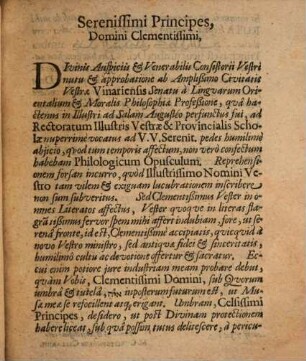 Serenissimi Principes,
Domini Clementissimi,
Divinis Auspiciis & Venerabilis Consistorii Vestri
nutu & approbatione ab Amplissimo Civitatis
Vestræ Vinariensis Senatu à Lingvarum Ori-
entalium & Moralis Philosophiæ Professione, quâ ha-
ctenus in Illustri ad Salam Augusteo perfunctus fui, ad
Rectoratum Illustris Vestræ & Provincialis Scho-
læ nuperrimè vocatus ad V.V. Serenit. pedes humilimè
abjicio, quod tum temporis affectum, non verò confectum
habebam Philologicum Opusculum. Reprehensi-
onem forsan incurro, quòd Illustrissimo Nomini Ve-
stro tam vilem & exiguam lucubrationem inscribere
non sum subveritus. Sed Clementissimus Vester in o-
mnes Literatos affectus, Vester quoque in literas fla-
grātissimus fervor spem mihi affert indubiam, fore, ut se-
renâ fronte, id est, Clementissimè accipiatis, quicquid à
novo Vestro ministro, sed antiquæ fidei & sinceritatis,
humilimo cultu ac devotione offertur & sacratur. Ec-
cui enim potiore jure industriam meam probare debui,
quàm Vobis, Clementissimi Domini, sub Qvorum
umbra & tutelâ, in posterum futurum est, ut Mu-
sæ meæ se refocillent atq; erigant. Umbram, Celsissimi
Principes, desidero, ut post Divinam protectionem
habere liceat, sub quâ possim tutus delitescere, à pericu-